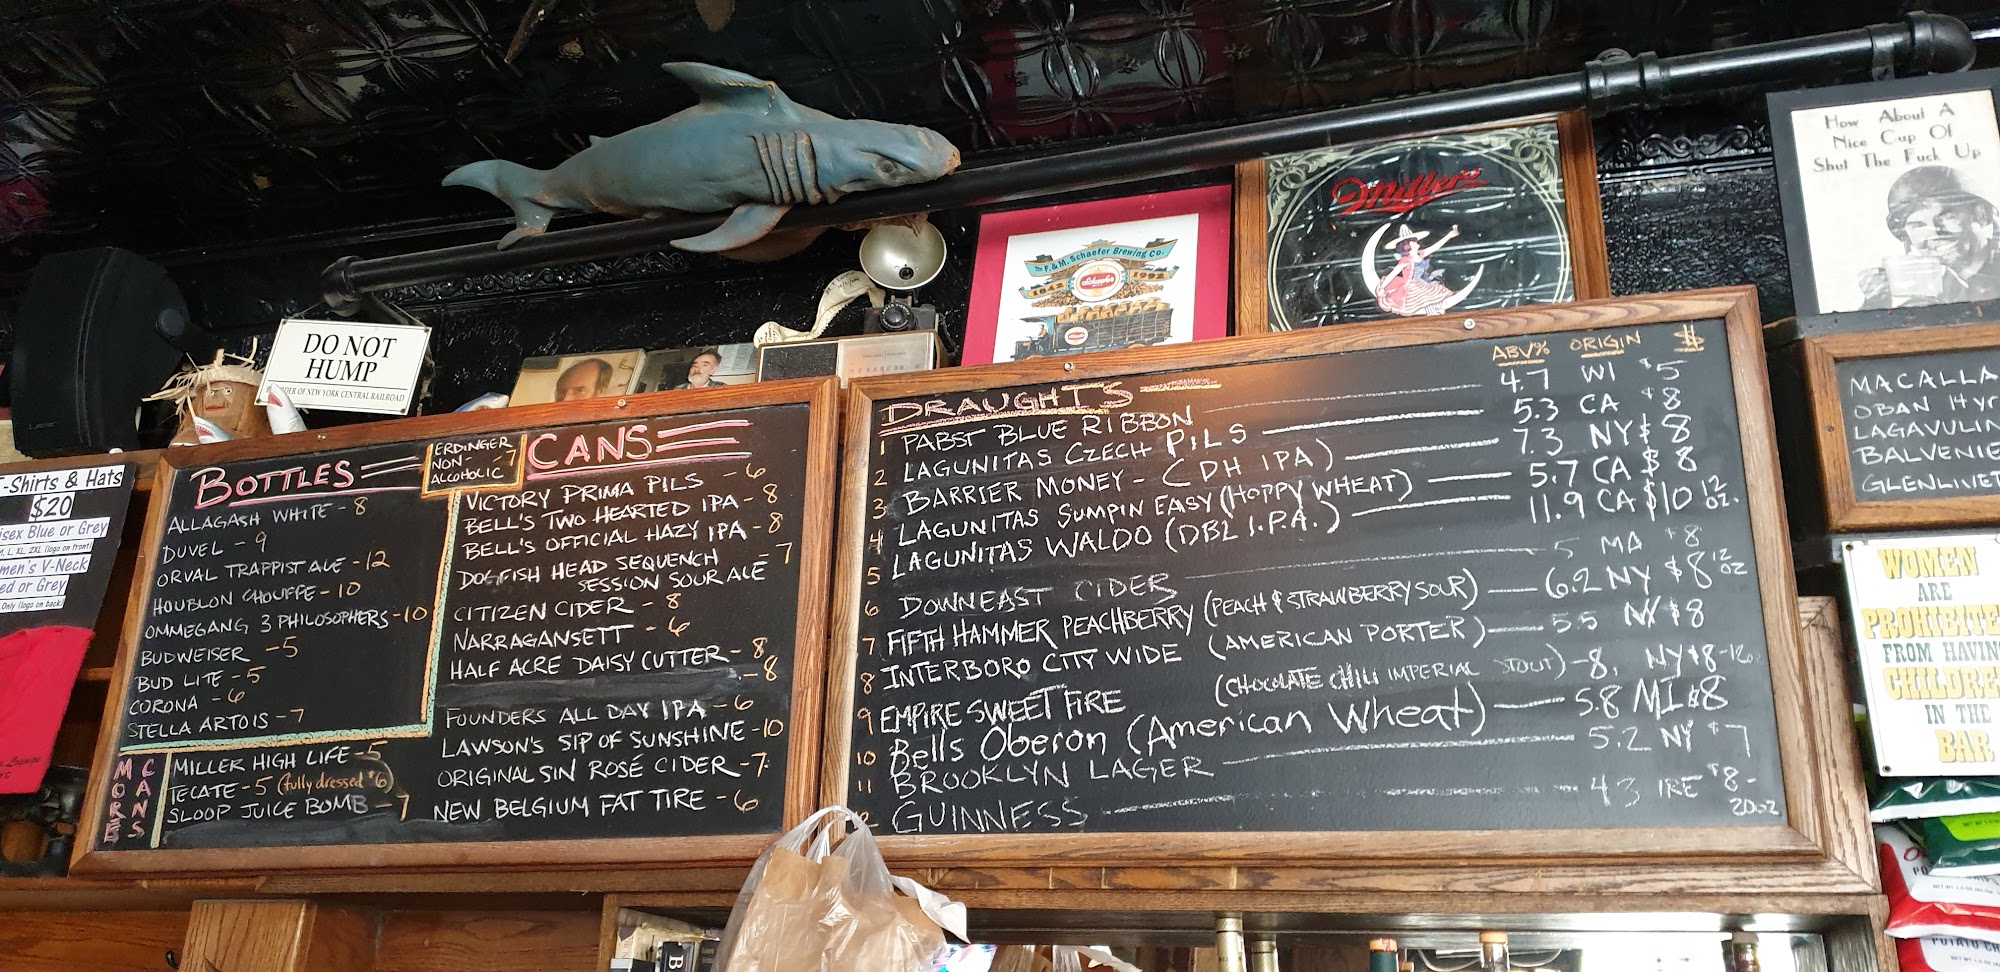 How About A
Nice Cup Of
Shut The Fuck Up
Miller
The F. & M. Schaefer Brewing Co.
1842 Schaefer 1992
DO NOT
HUMP
ORDER OF NEW YORK CENTRAL RAILROAD
T-Shirts & Hats
$20
isex Blue or Grey
M, L, XL, 2XL (logo on front)
men's V-Neck
ed or Grey
Only (logo on back)
BOTTLES
ALLAGASH WHITE - 8
DUVEL - 9
ORVAL TRAPPIST ALE - 12
HOUBLON CHOUFFE - 10
OMMEGANG 3 PHILOSOPHERS - 10
BUDWEISER - 5
BUD LITE - 5
CORONA - 6
STELLA ARTOIS - 7
ERDINGER
NON- - 7
ALCOHOLIC
MORE CANS
MILLER HIGH LIFE - 5
TECATE - 5 (fully dressed $6)
SLOOP JUICE BOMB - 7
CANS
VICTORY PRIMA PILS - 6
BELL'S TWO HEARTED IPA - 8
BELL'S OFFICIAL HAZY IPA - 8
DOGFISH HEAD SEQUENCH - 7
SESSION SOUR ALE
CITIZEN CIDER - 8
NARRAGANSETT - 6
HALF ACRE DAISY CUTTER - 8
- 8
FOUNDERS ALL DAY IPA - 6
LAWSON'S SIP OF SUNSHINE - 10
ORIGINAL SIN ROSÉ CIDER - 7
NEW BELGIUM FAT TIRE - 6
DRAUGHTS ABV% ORIGIN $
1 PABST BLUE RIBBON 4.7 WI $5
2 LAGUNITAS CZECH PILS 5.3 CA $8
3 BARRIER MONEY - (DH IPA) 7.3 NY $8
4 LAGUNITAS SUMPIN EASY (HOPPY WHEAT) 5.7 CA $8
5 LAGUNITAS WALDO (DBL I.P.A.) 11.9 CA $10 12 oz.
6 DOWNEAST CIDER 5 MA $8
7 FIFTH HAMMER PEACHBERRY (PEACH & STRAWBERRY SOUR) 6.2 NY $8 12 oz
8 INTERBORO CITY WIDE (AMERICAN PORTER) 5.5 NY $8
9 EMPIRE SWEET FIRE (CHOCOLATE CHILI IMPERIAL STOUT) - 8. NY $8 - 12oz
10 Bells Oberon (American Wheat) 5.8 MI $8
11 BROOKLYN LAGER 5.2 NY $7
GUINNESS 43 IRE $8 -
20oz
MACALLA
OBAN 14 yr
LAGAVULIN
BALVENIE
GLENLIVET
WOMEN
ARE
PROHIBITE
FROM HAVIN
CHILDRE
IN THE
BAR